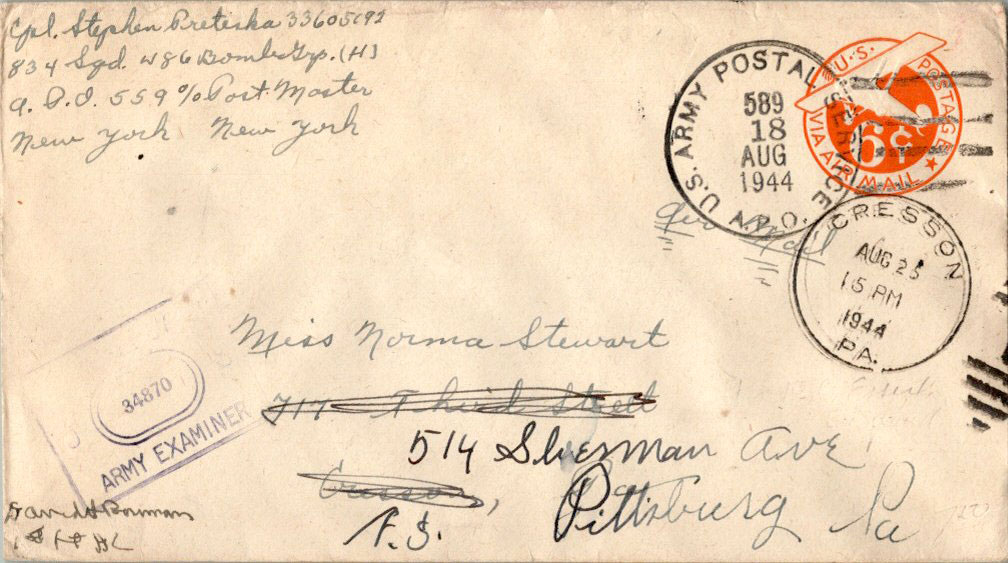 Cpl. Stephen Preteska 33605692
834 Sqd. 486 Bomb. Grp. (H)
A. P. O. 559 % Post Master
New York New York
U.S. ARMY POSTAL SERVICE A.P.O.
589
18
AUG
1944
U.S. POSTAGE
6¢
VIA AIR MAIL
Air Mail
CRESSON
AUG 25
15 PM
1944
PA.
Miss Norma Stewart
717 Third Street
514 Sherman Ave
Cresson,
Pittsburg Pa
34870
ARMY EXAMINER
David H Bowman